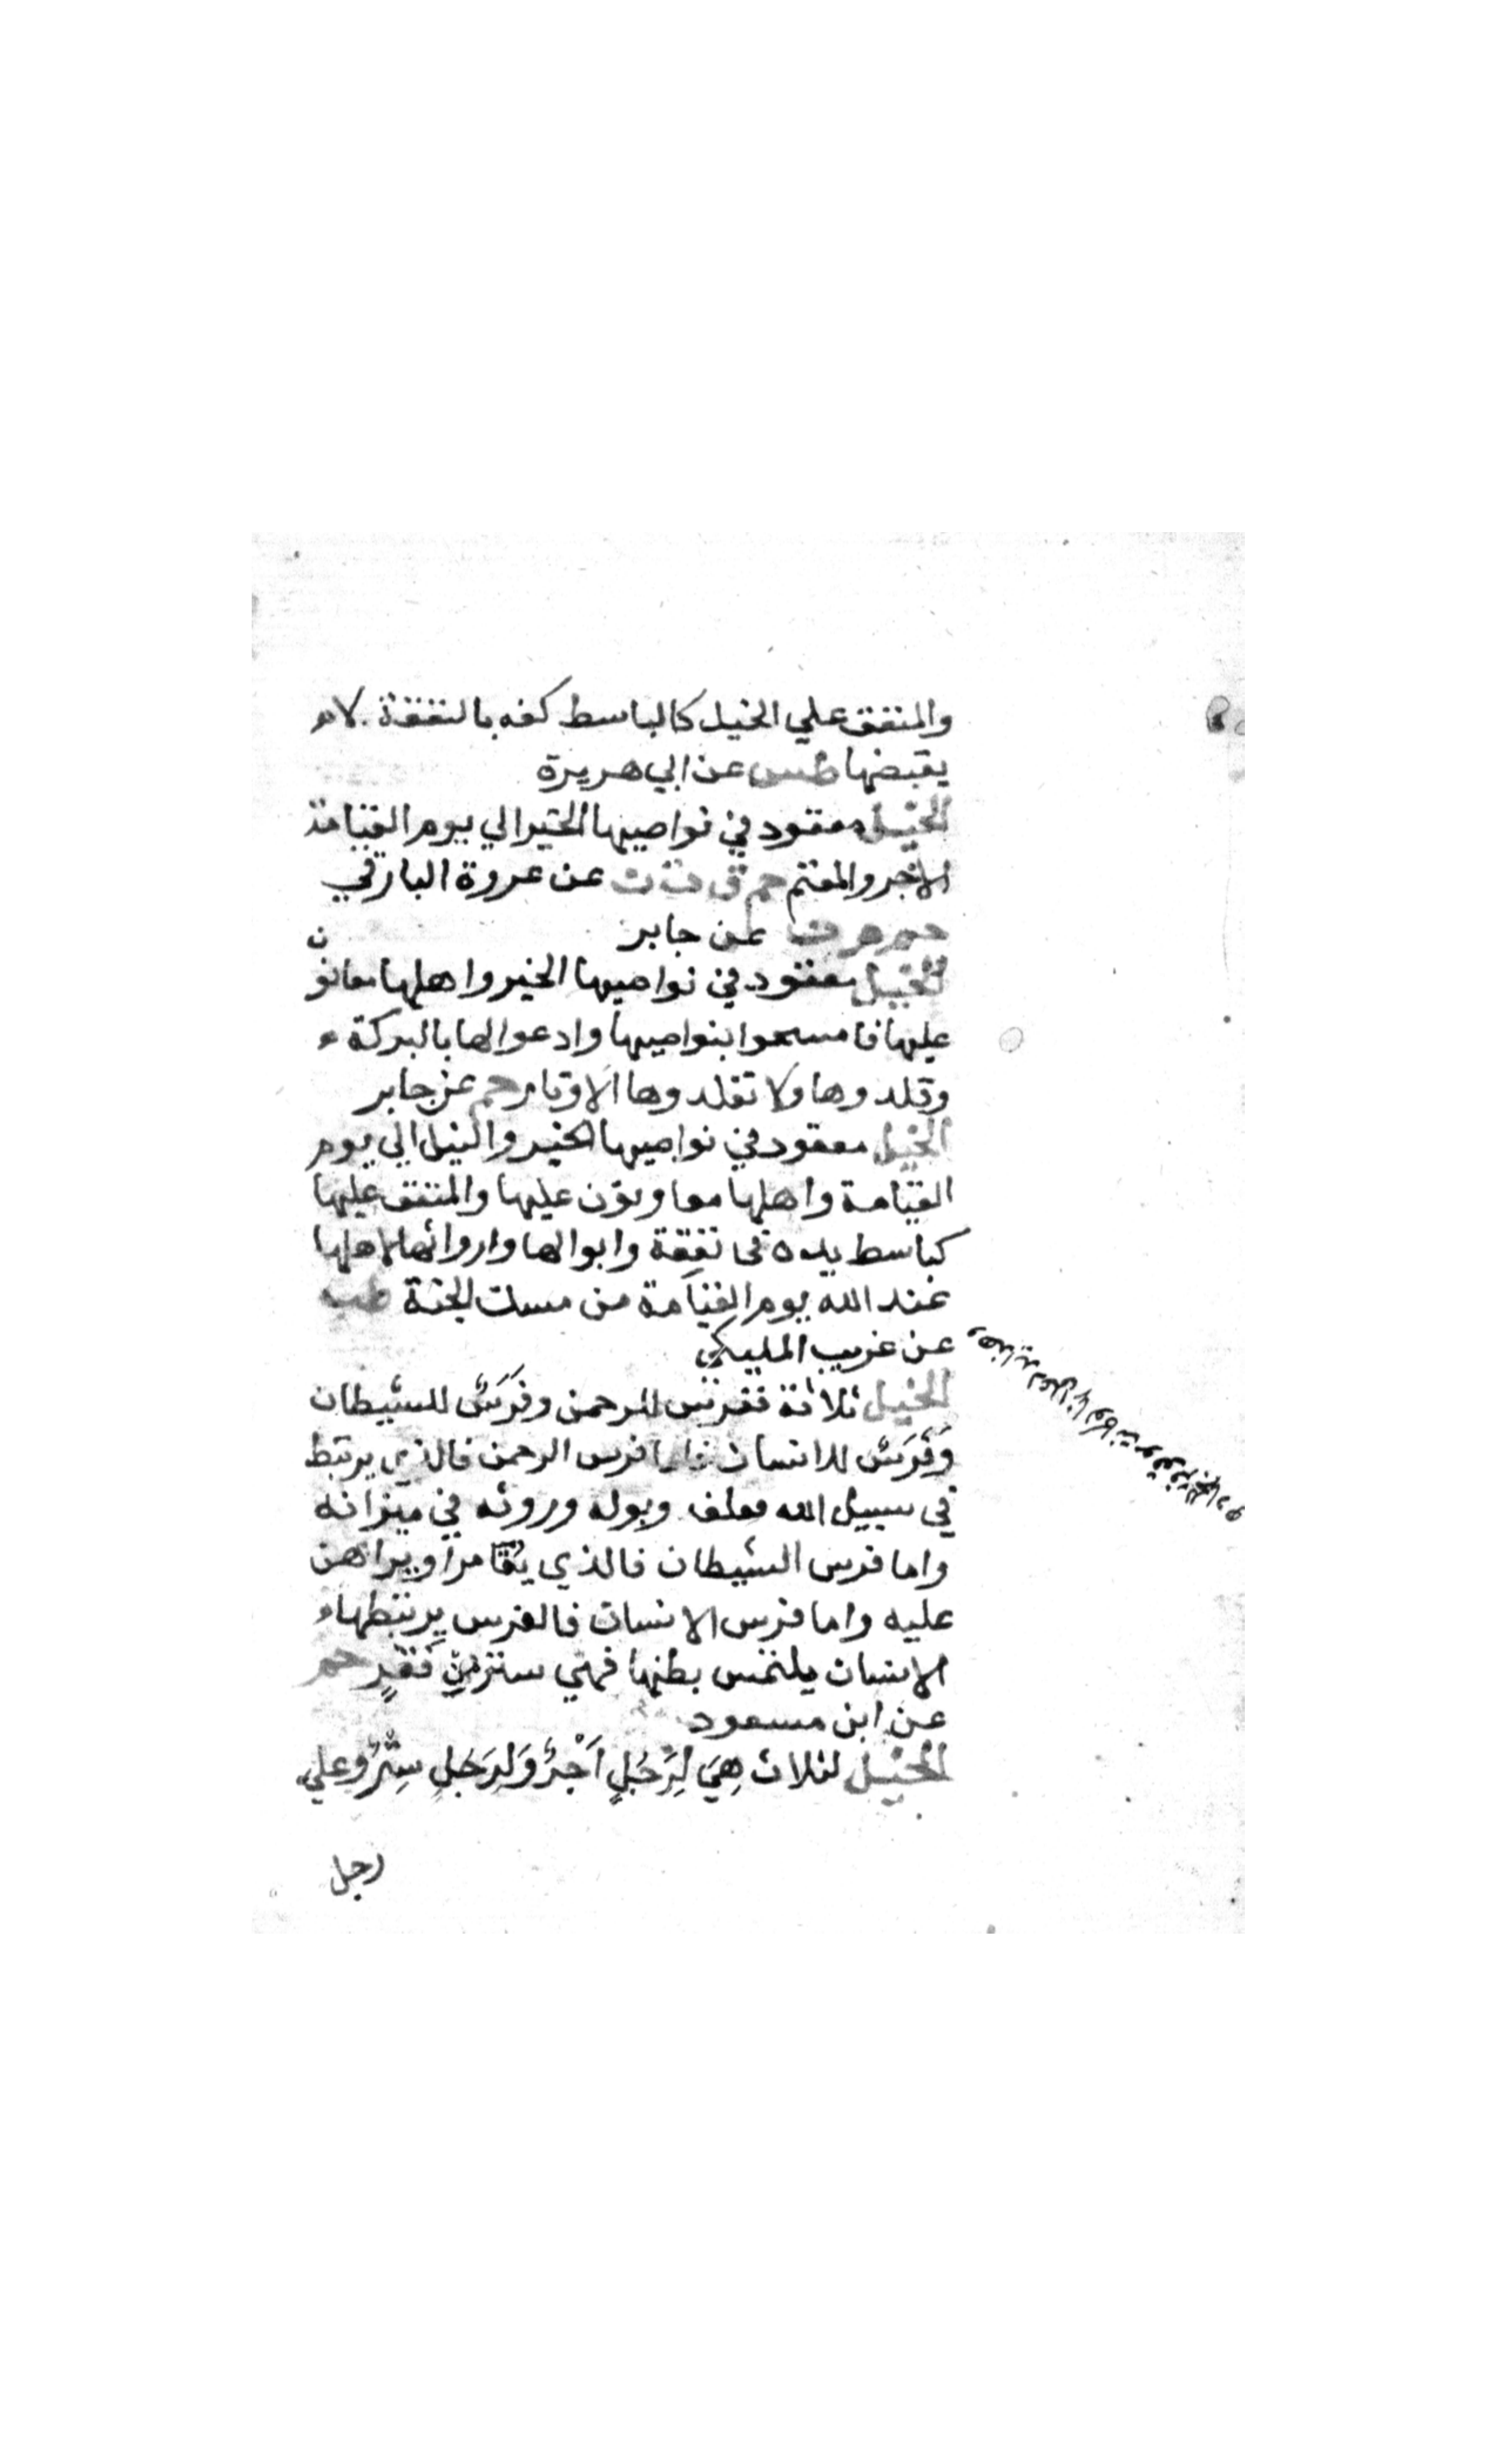 والمنفق علي الخيل كالباسط كفه بالنفقة لا
يقبضها طس عن ابي هريرة
الخيل معقود في نواصيها الخير الي يوم القيامة
الاجر والمغنم حم ق ت ن عن عروة البارقي
حم م ن عن جابر
الخيل معقود في نواصيها الخير واهلها معانون
عليها فامسحوا بنواصيها وادعوا لها بالبركة
وقلدوها ولا تقلدوها الاوتار حم عن جابر
الخيل معقود في نواصيها الخير والنيل الي يوم
القيامة واهلها معاونون عليها والمنفق عليها
كباسط يده في نفقة وابوالها وارواثها لاهلها
عند الله يوم القيامة من مسك الجنة طب
عن غريب المليكي
الخيل ثلاثة ففرس للرحمن وفَرَسٌ للشيطان
وَفَرَسٌ للانسان فاما فرس الرحمن فالذي يرتبط
في سبيل الله فعلف وبوله وروثه في ميزانه
واما فرس الشيطان فالذي يُقَامر او يراهن
عليه واما فرس الانسان فالفرس يرتبطها
الانسان يلتمس بطنها فهي ستر من فَقْرٍ حم
عن ابن مسعود
الخيل لثلاث هِيَ لِرَجُلٍ اَجْرٌ وَلِرَجُلٍ سِتْرٌ وعلي
رجل